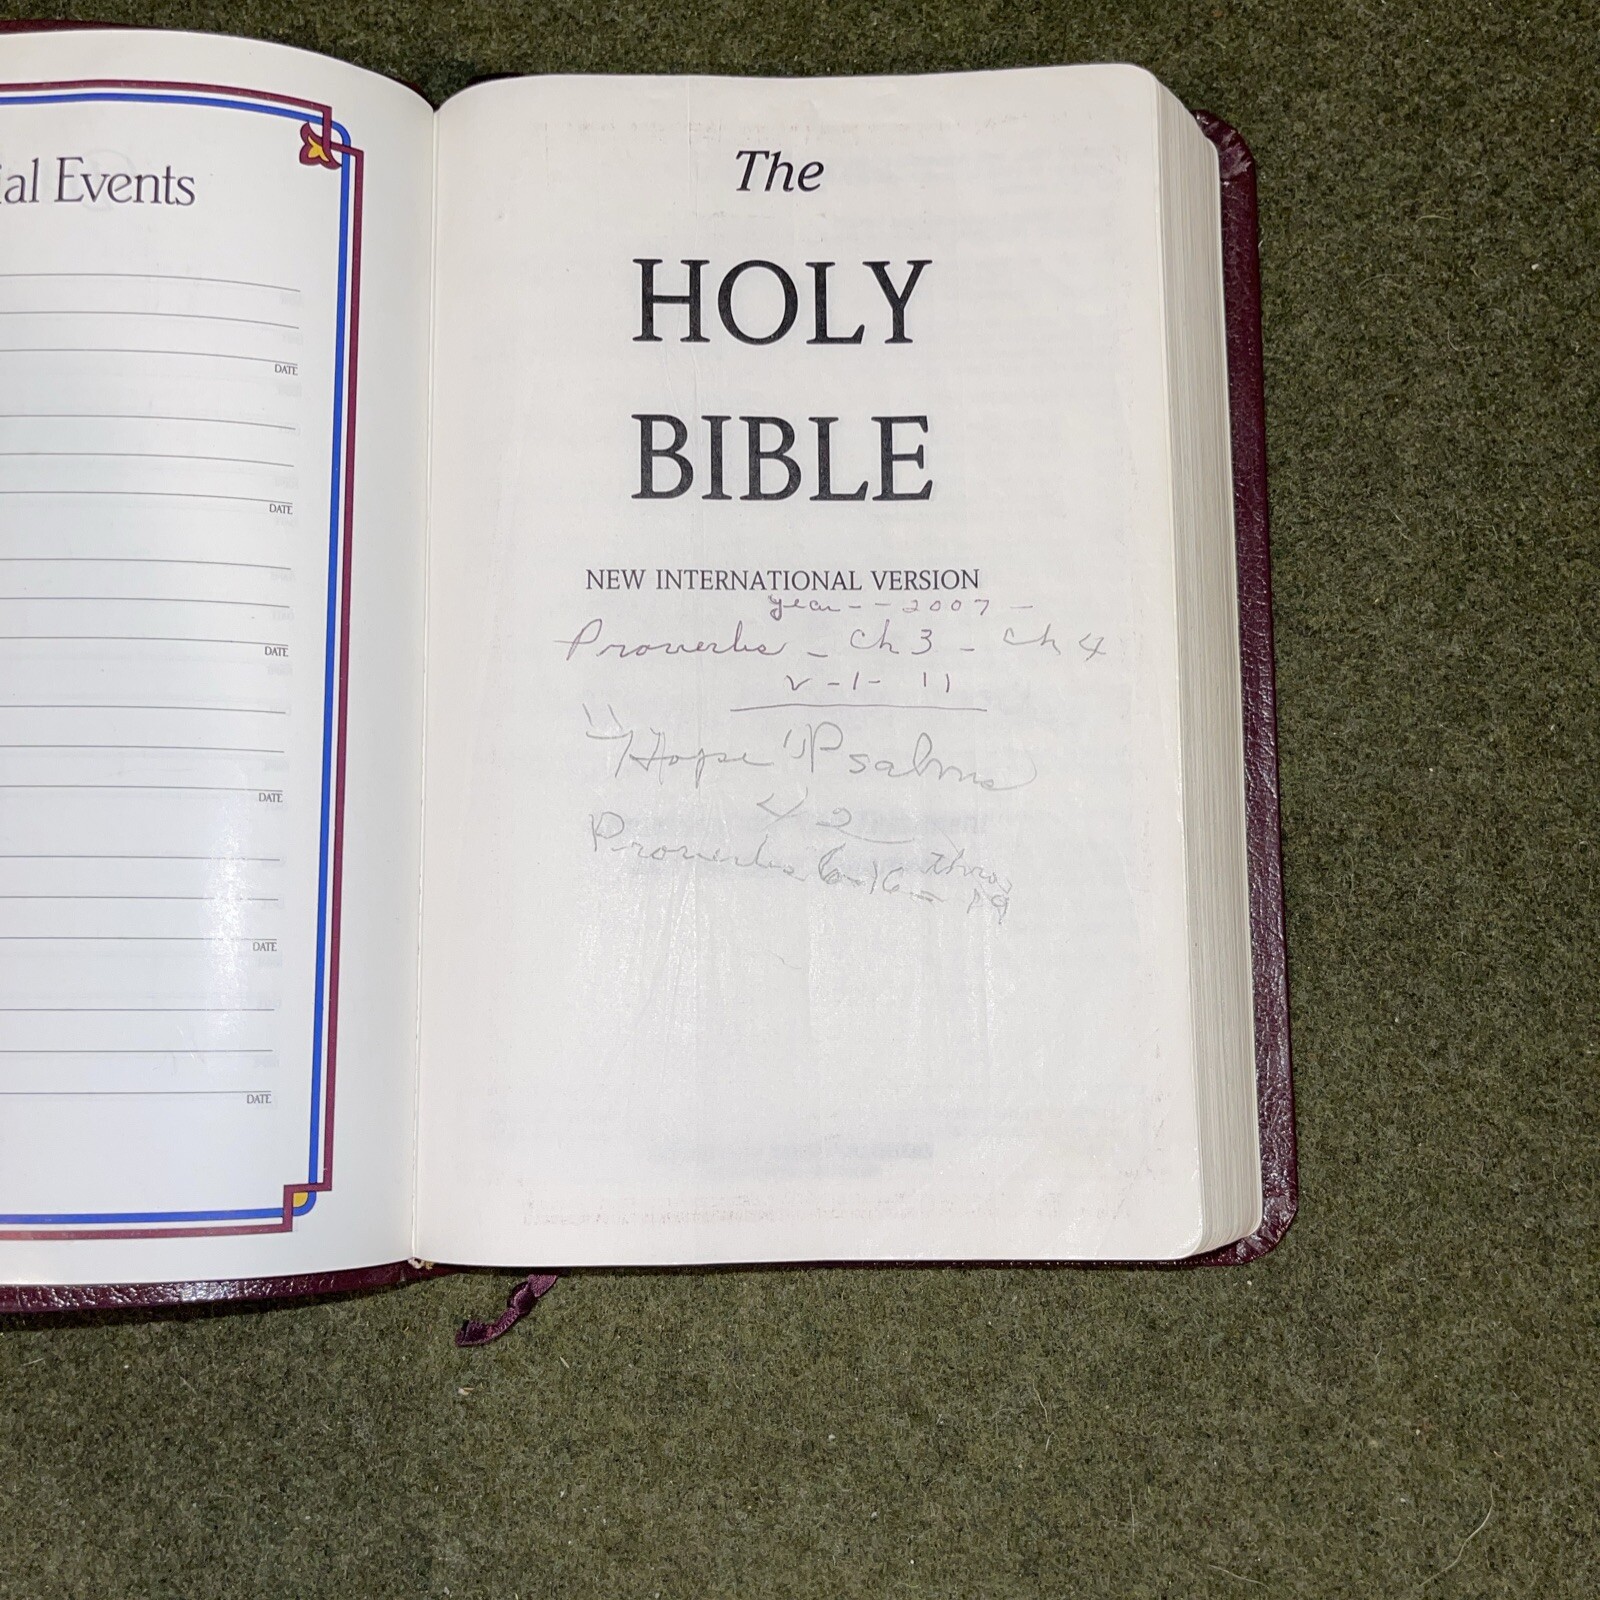 ial Events
DATE
DATE
DATE
DATE
DATE
DATE
The
HOLY
BIBLE
NEW INTERNATIONAL VERSION
year - - 2007 -
Proverbs - Ch 3 - Ch 4
v - 1 - 11
"Hope" Psalms
42
Proverbs 6-16- thru
19